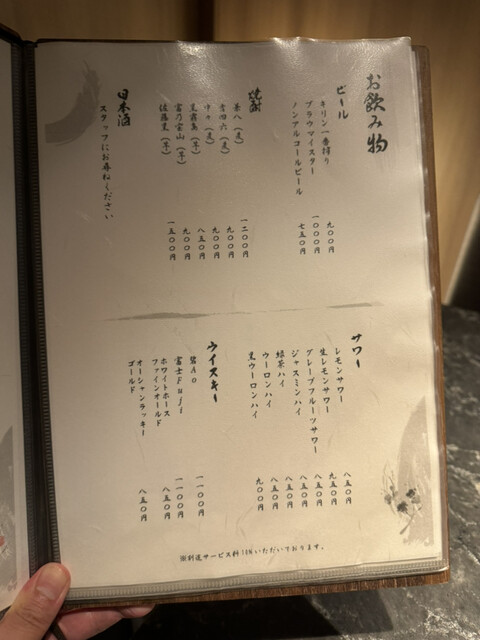 お飲み物
ビール
キリン一番搾り 九〇〇円
ブラウマイスター 一〇〇〇円
ノンアルコールビール 七五〇円
焼酎
兼八（麦） 一二〇〇円
吉四六（麦） 九〇〇円
中々（麦） 九〇〇円
黒霧島（芋） 八五〇円
富乃宝山（芋） 九〇〇円
佐藤黒（芋） 一五〇〇円
日本酒
スタッフにお尋ねください
サワー
レモンサワー 八五〇円
生レモンサワー 九五〇円
グレープフルーツサワー 八五〇円
ジャスミンハイ 八五〇円
緑茶ハイ 八五〇円
ウーロンハイ 八五〇円
黒ウーロンハイ 九〇〇円
ウイスキー
碧Ao 一一〇〇円
富士Fuji 一一〇〇円
ホワイトホース
ファインオールド 八五〇円
オーシャンラッキー
ゴールド 八五〇円
※別途サービス料10%いただいております。